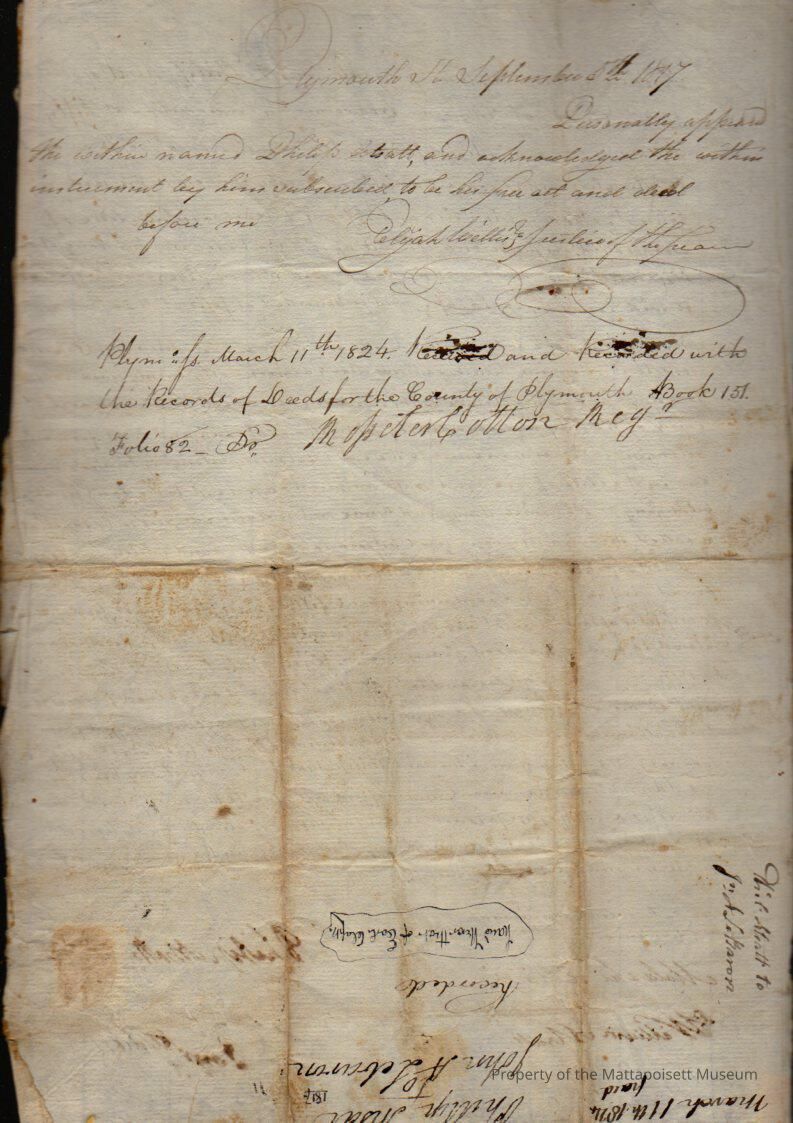 Plymouth Ss September 5th 1817
Personally appeared
the within named Philip Atsatt, and acknowledged the within
instrument by him subscribed to be his free act and deed
before me Elijah Willis Justice of the peace
Plym: ss. March 11th 1824. Received and Recorded with
the Records of Deeds for the County of Plymouth Book 151.
Folio 82
Rossiter Cotton Regr
to
Land North of
Recorded
John A Lebaron
to
1817
Philip
March 11th 1824
paid
Property of the Mattapoisett Museum